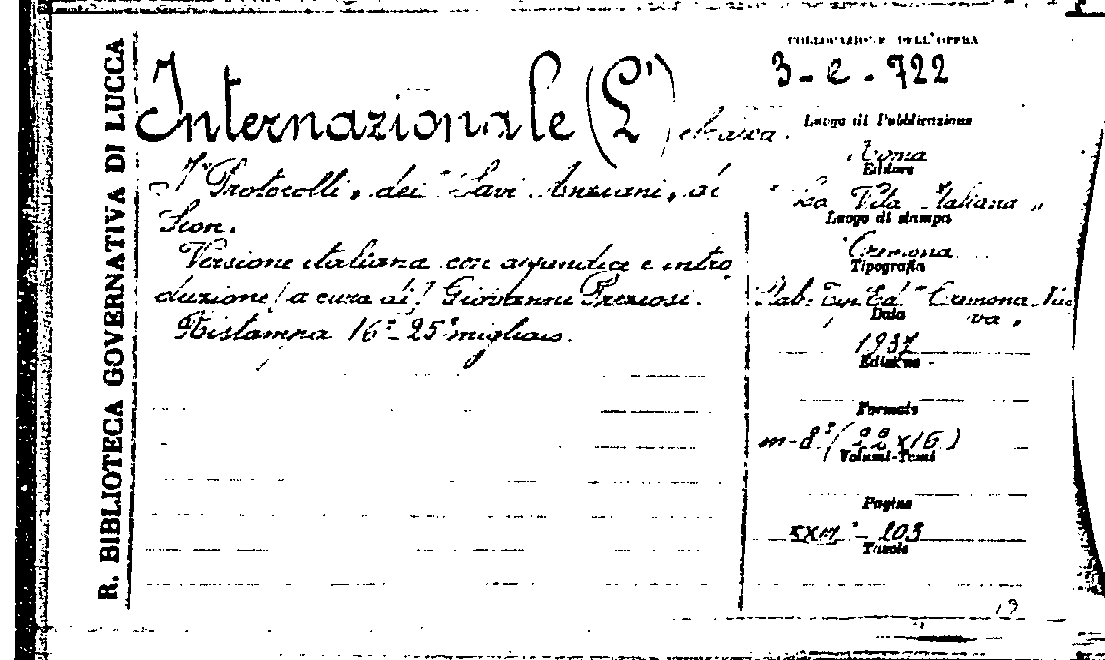 R. BIBLIOTECA GOVERNATIVA DI LUCCA
Internazionale (L') ebraica.
I "Protocolli" dei "Savi Anziani" di
Sion.
Versione italiana con appendice e intro
duzione [a cura di] Giovanni Preziosi.
Ristampa 16°-25° migliaio.
COLLOCAZIONE DELL'OPERA
3-e-722
Luogo di Pubblicazione
Roma
Editore
"La Vita Italiana"
Luogo di stampa
Cremona
Tipografia
Stab. Tip. Ed. "Cremona Nuo
va"
Data
1937
Edizione
Formato
m-8° (22x16)
Volumi-Tomi
Pagine
203
Tavole